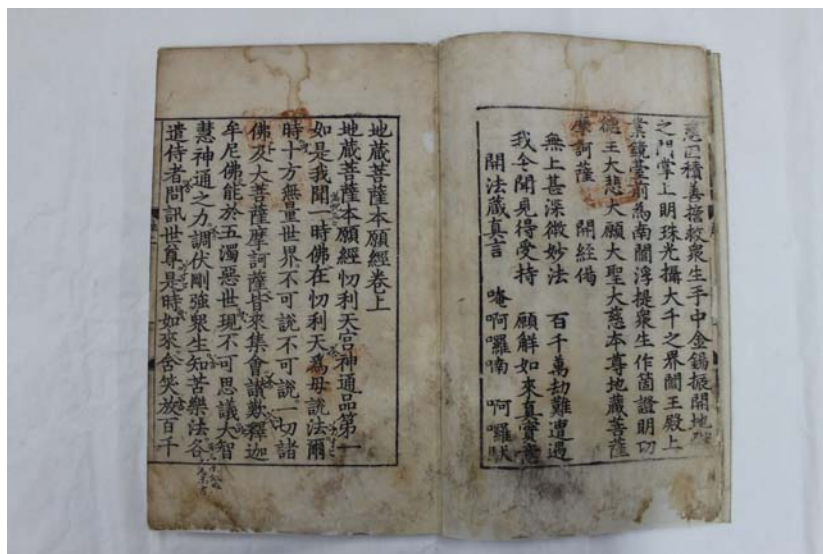 慈因積善誓救衆生手中金錫振開地獄
之門掌上明珠光攝大千之界閻王殿上
業鏡臺前爲南閻浮提衆生作箇證明功
德主大悲大願大聖大慈本尊地藏菩薩
摩訶薩 開經偈
無上甚深微妙法 百千萬劫難遭遇
我今聞見得受持 願解如來真實意
開法藏真言 唵 啊囉喃 啊囉馱
地藏菩薩本願經卷上
地藏菩薩本願經忉利天宮神通品第一
如是我聞一時佛在忉利天爲母說法爾
時十方無量世界不可說不可說一切諸
佛及大菩薩摩訶薩皆來集會讃歎釋迦
牟尼佛能於五濁惡世現不可思議大智
慧神通之力調伏剛強衆生知苦樂法各
遣侍者問訊世尊是時如來含笑放百千